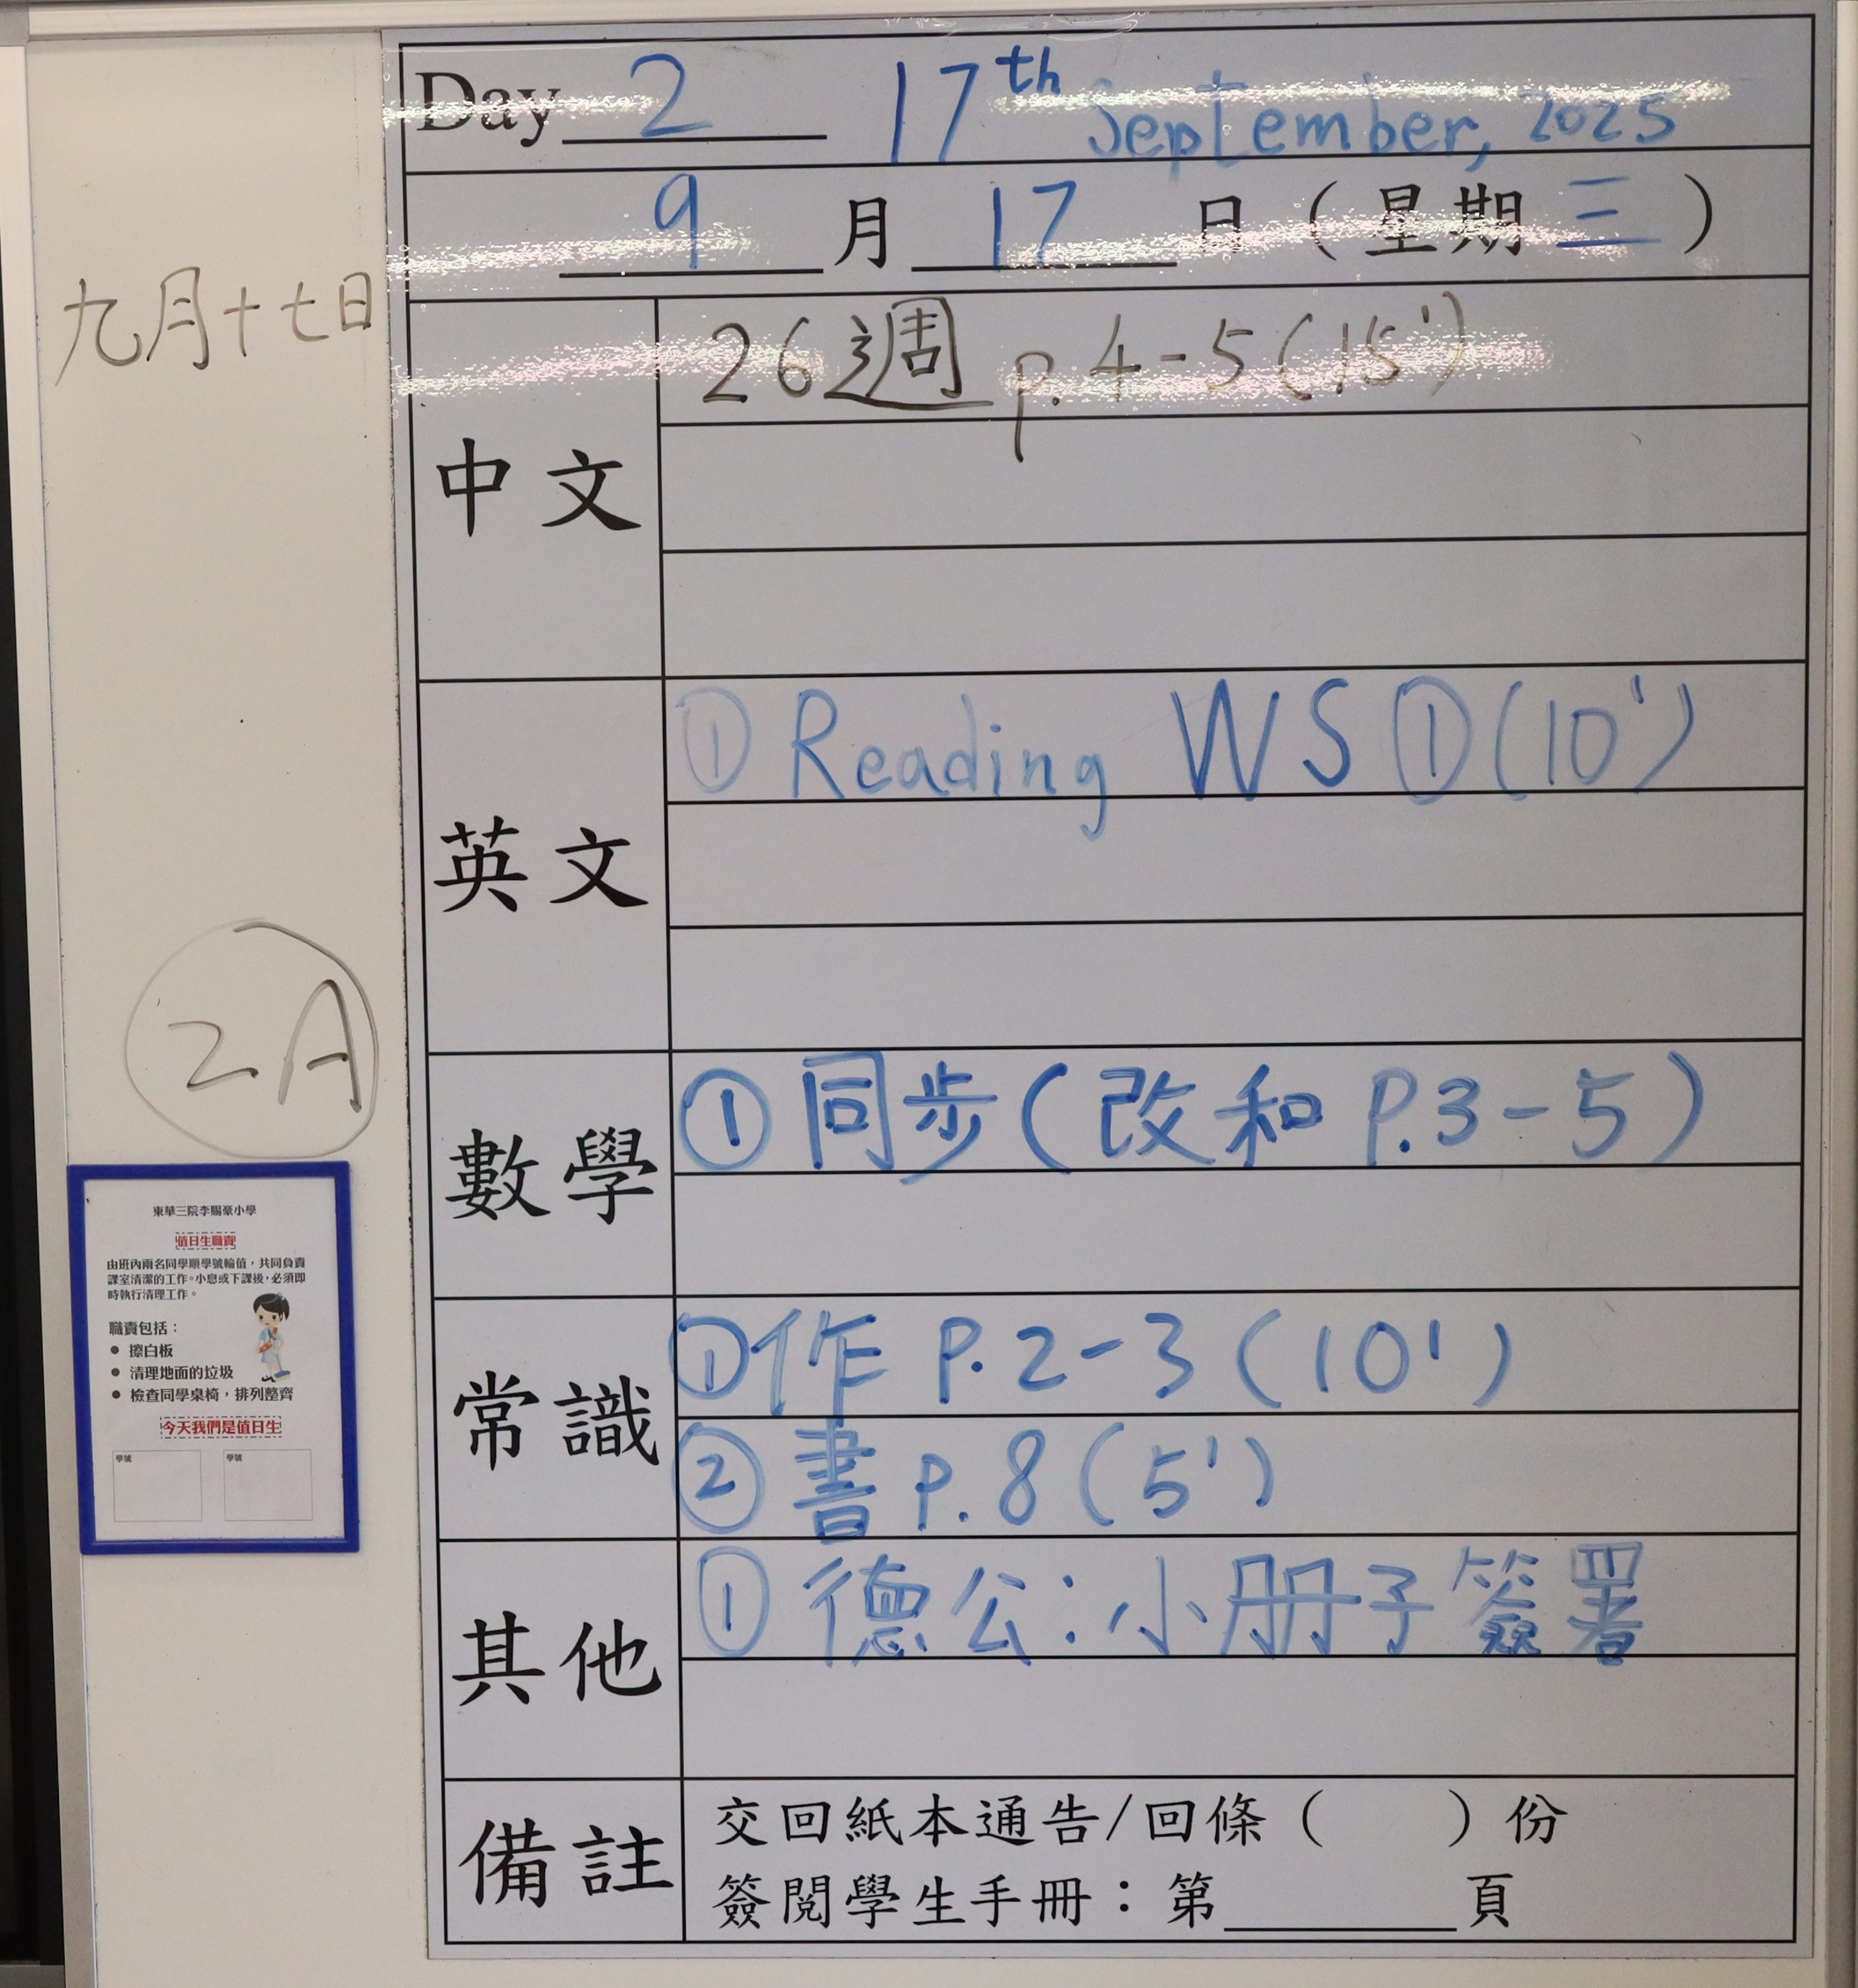 Day 2 17th September, 2025
9 月 17 日 ( 星期 三 )
九月十七日
中文
26週 p.4-5(15')
英文
① Reading WS ① (10')
2A
數學
① 同步 ( 改和 P.3-5 )
常識
① 作 P.2-3 (10')
② 書 p.8 (5')
其他
① 德公:小冊子簽署
備註
交回紙本通告/回條 ( ) 份
簽閱學生手冊:第 頁
東華三院李賜豪小學
值日生職責
由班內兩名同學順學號輪值,共同負責
課室清潔的工作。小息或下課後,必須即
時執行清理工作。
職責包括:
• 擦白板
• 清理地面的垃圾
• 檢查同學桌椅,排列整齊
今天我們是值日生
學號 學號